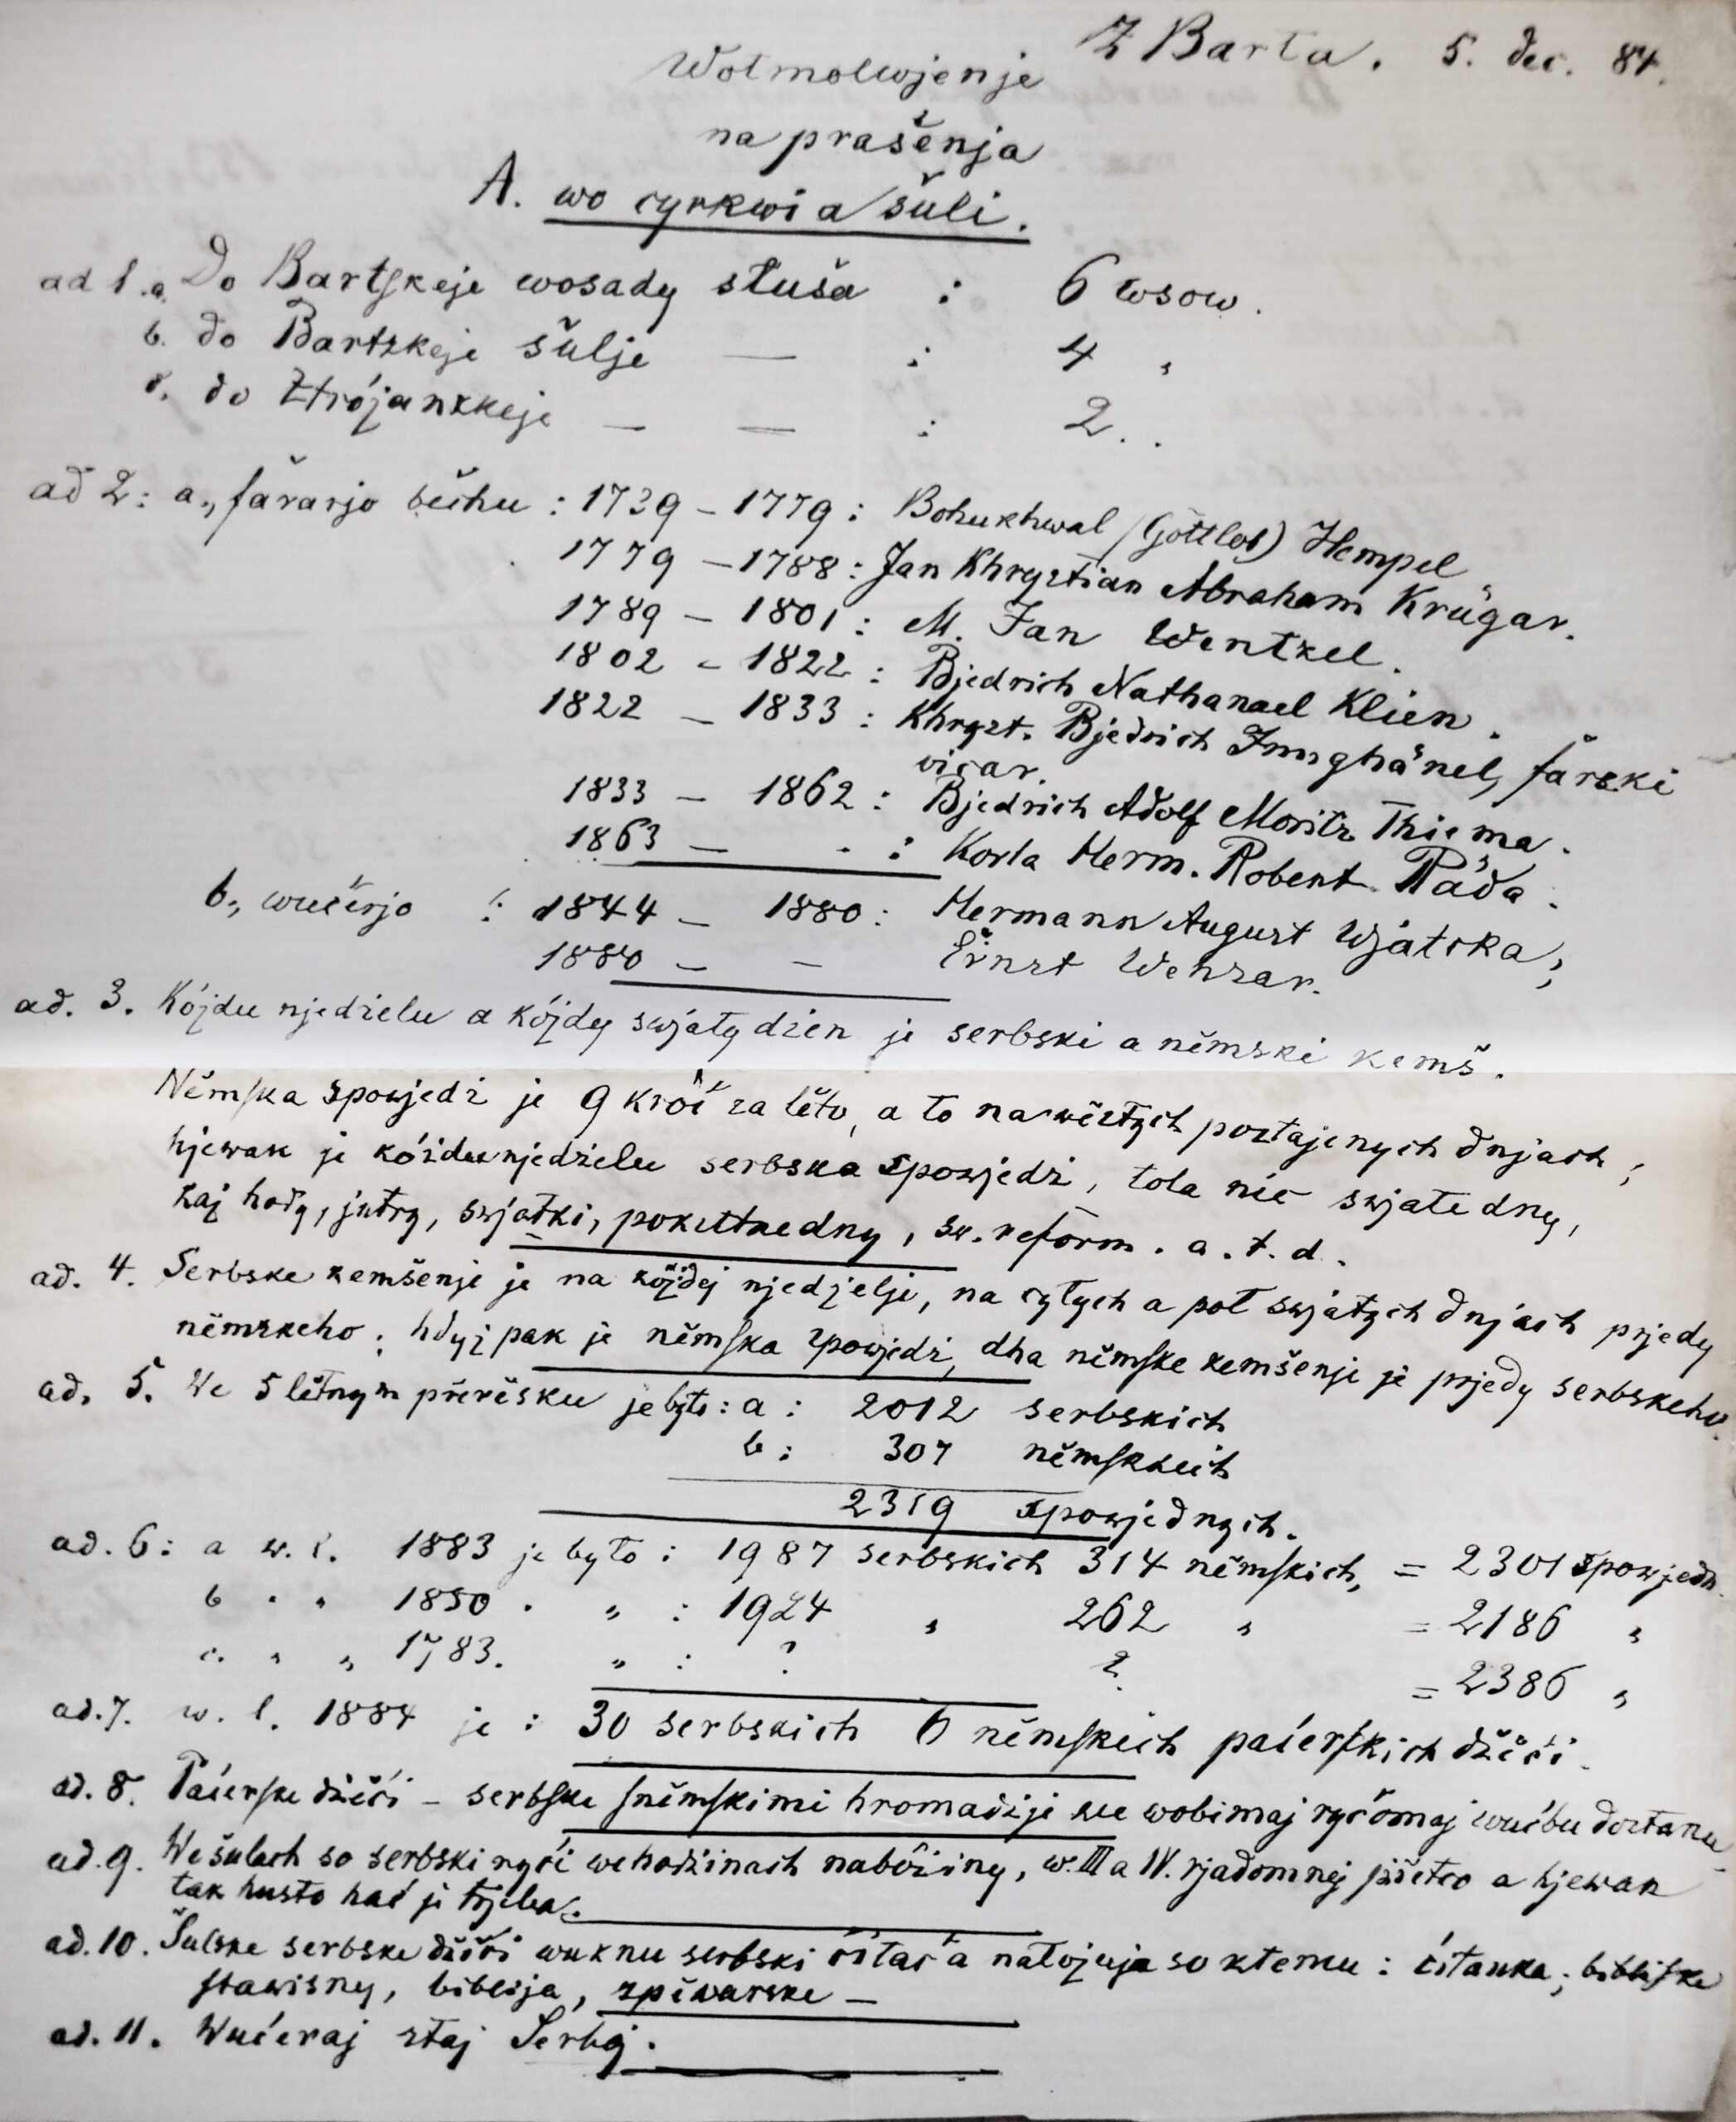 Z Barta. 5. dec. 84.
Wotmolwjenje
na prašenja
A. wo cyrkwi a šuli.
ad 1. a. Do Bartskeje wosady słuša : 6 wsow.
b. do Bartskeje šulje — : 4 "
c. do Strójanskeje — — : 2 "
ad 2: a., fararjo běchu : 1739 – 1779 : Bohukhwal (Gottlob) Hempel
1779 – 1788 : Jan Khrystian Abraham Krügar.
1789 – 1801 : M. Jan Wentzel.
1802 – 1822 : Bjedrich Nathanael Klien.
1822 – 1833 : Khryst. Bjedrich Junghänel, farski
vicar.
1833 – 1862 : Bjedrich Adolf Moritz Thiema.
1863 – - : Korla Herm. Robert Räda.
b., wučerjo : 1844 – 1880 : Hermann August Wjatska,
1880 – – Ernst Wehsar.
ad. 3. Kójdu njedzielu a kójdy swjaty dzien je serbski a němski kemš.
Němska spowjedz je 9 króć za lěto, a to na wěstych postajenych dnjach;
hjewak je kóżdu njedzielu serbska spowjedz, tola nic swjate dny,
kaj hody, jutry, swjatki, pokutne dny, sw. reform. a. t. d.
ad. 4. Serbske kemšenje je na kójdej njedzelji, na cyłych a poł swjatych dnjach prjedy
němskeho; hdyj pak je němska spowjedz, dha němske kemšenje je prjedy serbskeho.
ad. 5. We 5 lětnym přerěsku je było : a : 2012 serbskich
b : 307 němskich
2319 spowjednych.
ad. 6 : a w. l. 1883 je było : 1987 serbskich 314 němskich, = 2301 spowjedn.
b " " 1850 " " : 1924 " 262 " = 2186 "
c. " " 1783. " : ? ? = 2386 "
ad. 7. w. l. 1884 je : 30 serbskich 6 němskich paćerskich dźěći.
ad. 8. Paćerske dźěći – serbske s němskimi hromadźe we wobimaj ryčomaj wučbu dostanu
ad. 9. We šulach so serbski ryči we hodźinach nabóžiny, w. III a IV. rjadownej pišetco a hjewak
tak husto hać je trjeba.
ad. 10. Šulske serbske dźěći wuknu serbski čitać a natožuja so k temu : čitanka; bibliske
stawisny, biblija, spěwarske –
ad. 11. Wučeraj staj Serbaj.